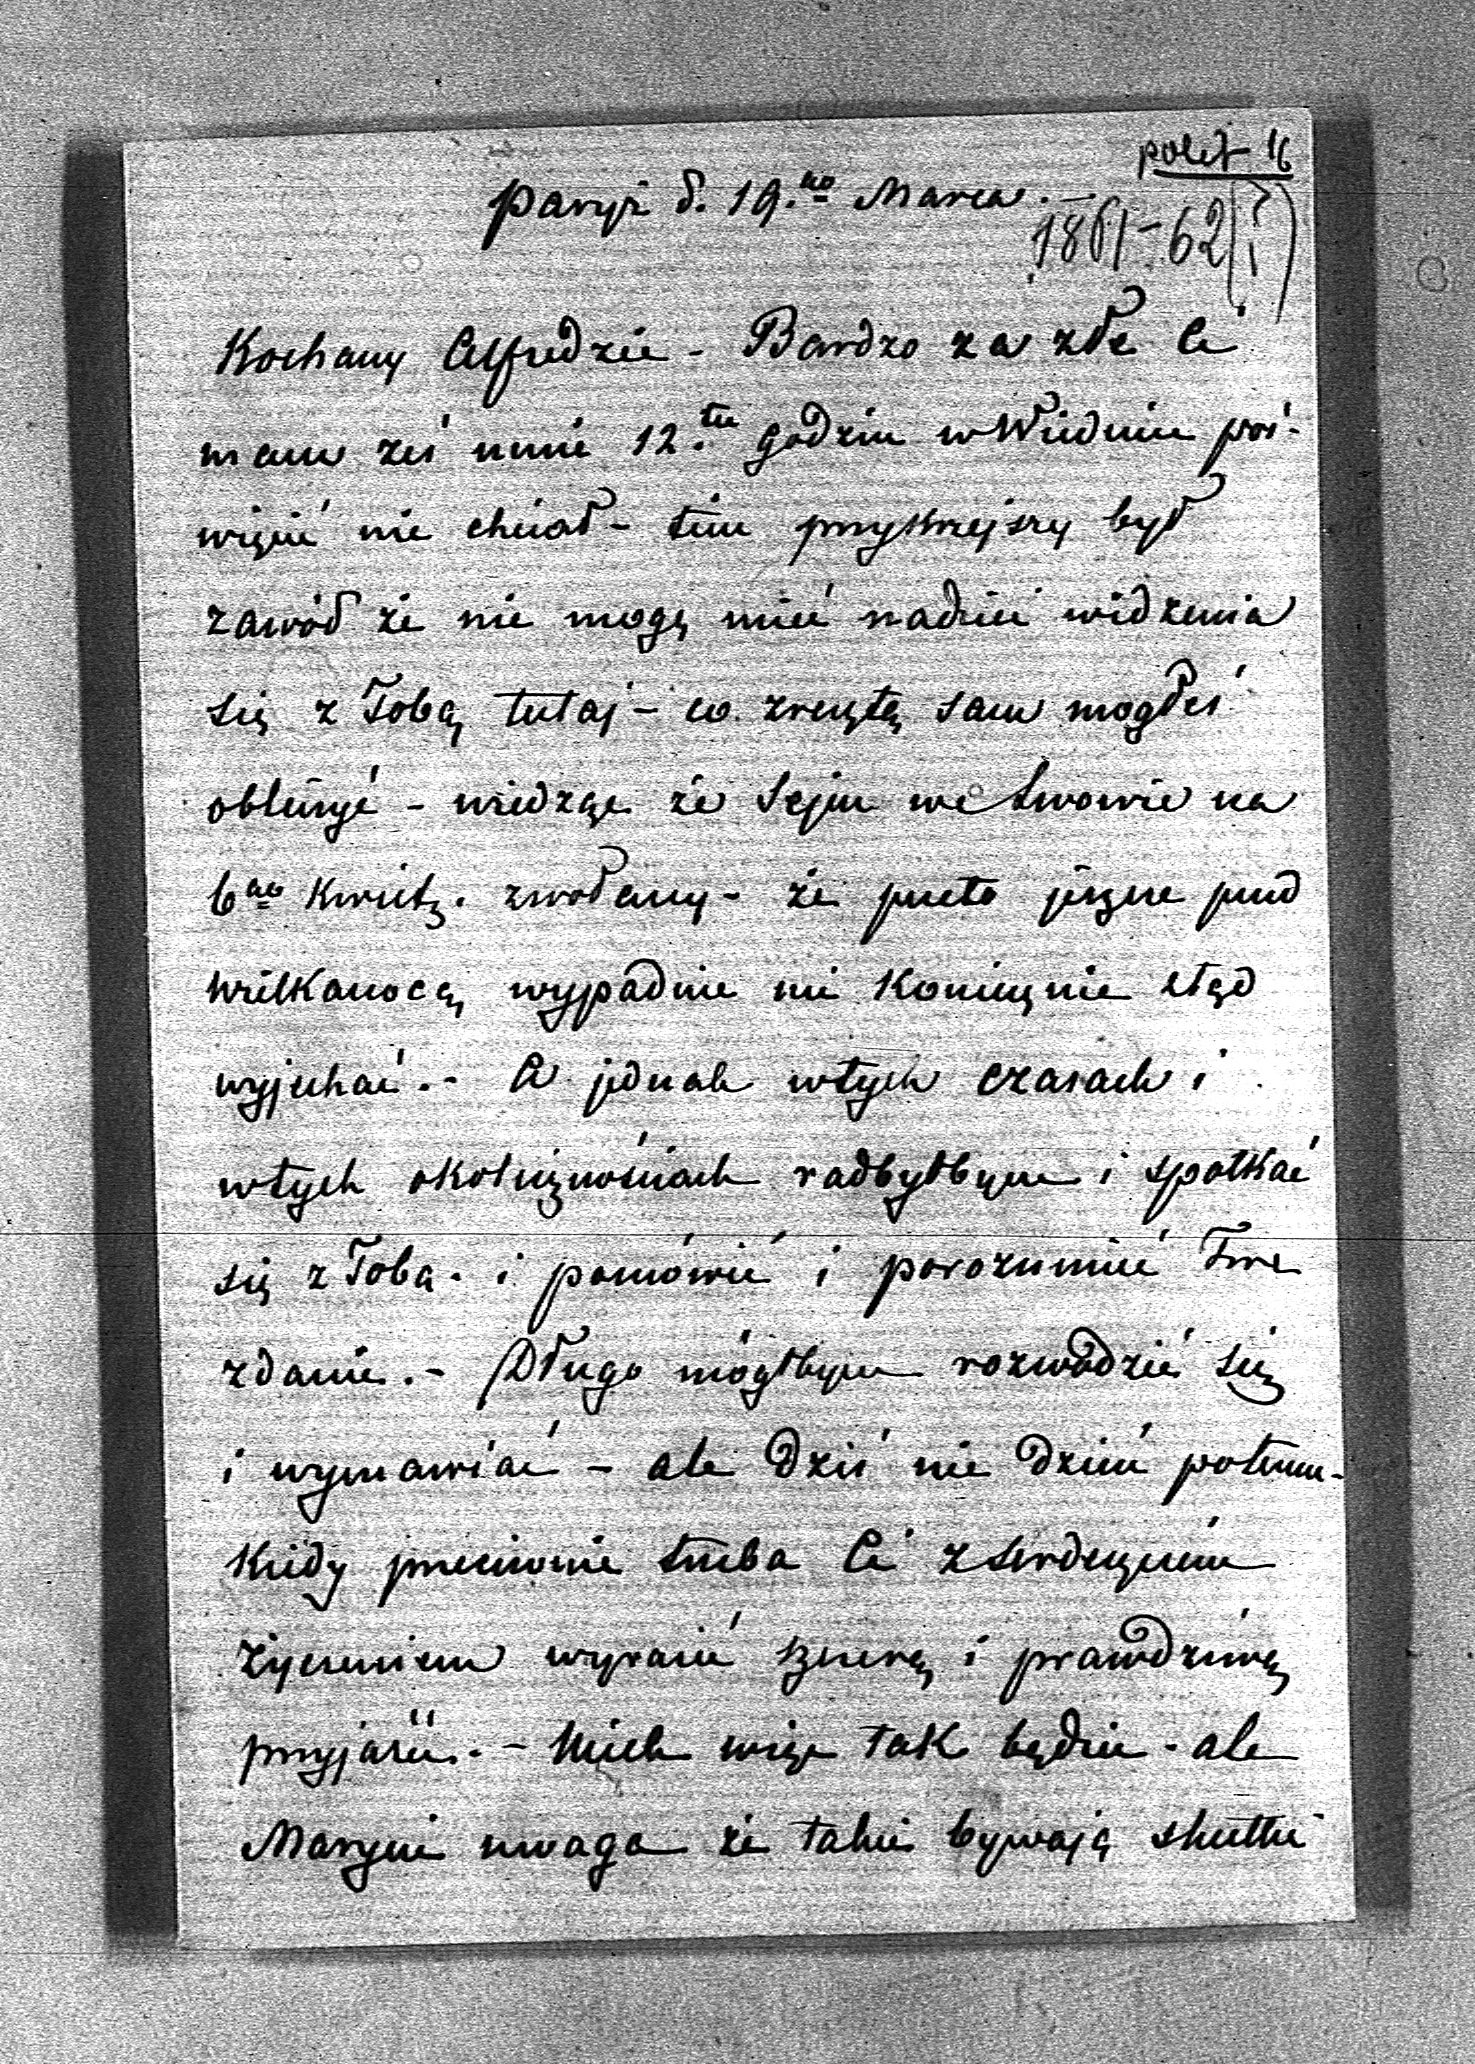 polit 16
Paryż d. 19.go Marca. -
1861-62(?)
Kochany Alfredzie - Bardzo za złe Ci
mam żeś mnie 12.tu godzin w Wiedniu poś-
więcić nie chciał - tém przykrzejszy był
zawód że nie mogę mieć nadziei widzenia
się z Tobą tutaj - co zresztą sam mogłeś
obliczyć - wiedząc że Sejm we Lwowie na
6go Kwietn. zwołany - że przeto jeszcze przed
Wielkanocą wypadnie mi koniecznie ztąd
wyjechać. - A jednak w tych czasach i
w tych okolicznościach radbyłbym i spotkać
się z Tobą - i pomówić i porozumieć Twe
zdanie. - Długo mógłbym rozwodzić się
i wymawiać - ale dziś nie dzień potemu -
kiedy przeciwnie trzeba Ci z serdeczném
życzeniem wyrazić szczerą i prawdziwą
przyjaźń. - Niech więc tak będzie - ale
Maryni uwaga że takie bywają skutki